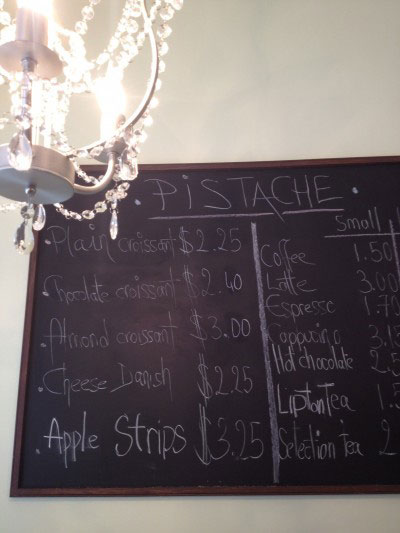 PiSTACHE
Plain croissant $2.25
Chocolate croissant $2.40
Almond croissant $3.00
Cheese Danish $2.25
Apple Strips $3.25
Small
Coffee 1.50
Latte 3.00
Espresso 1.7
Cappucino 3.1
Hot chocolate 2.5
Lipton Tea 1.
Selection tea 2